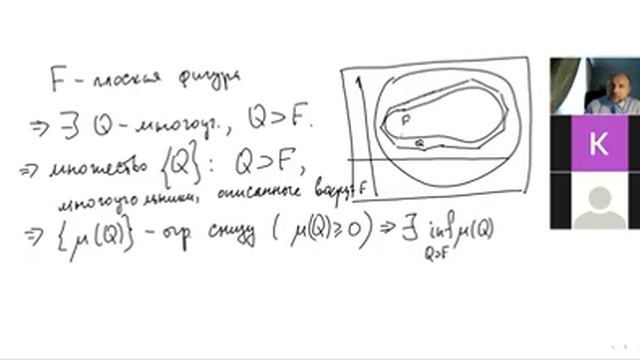 F – плоская фигура
⇒ ∃ Q – многоуг., Q ⊃ F.
⇒ множество {Q}: Q ⊃ F,
многоугольники, описанные вокруг F
⇒ {μ(Q)} – огр снизу (μ(Q) ≥ 0) ⇒ ∃ inf μ(Q)
Q⊃F
F
Q
K